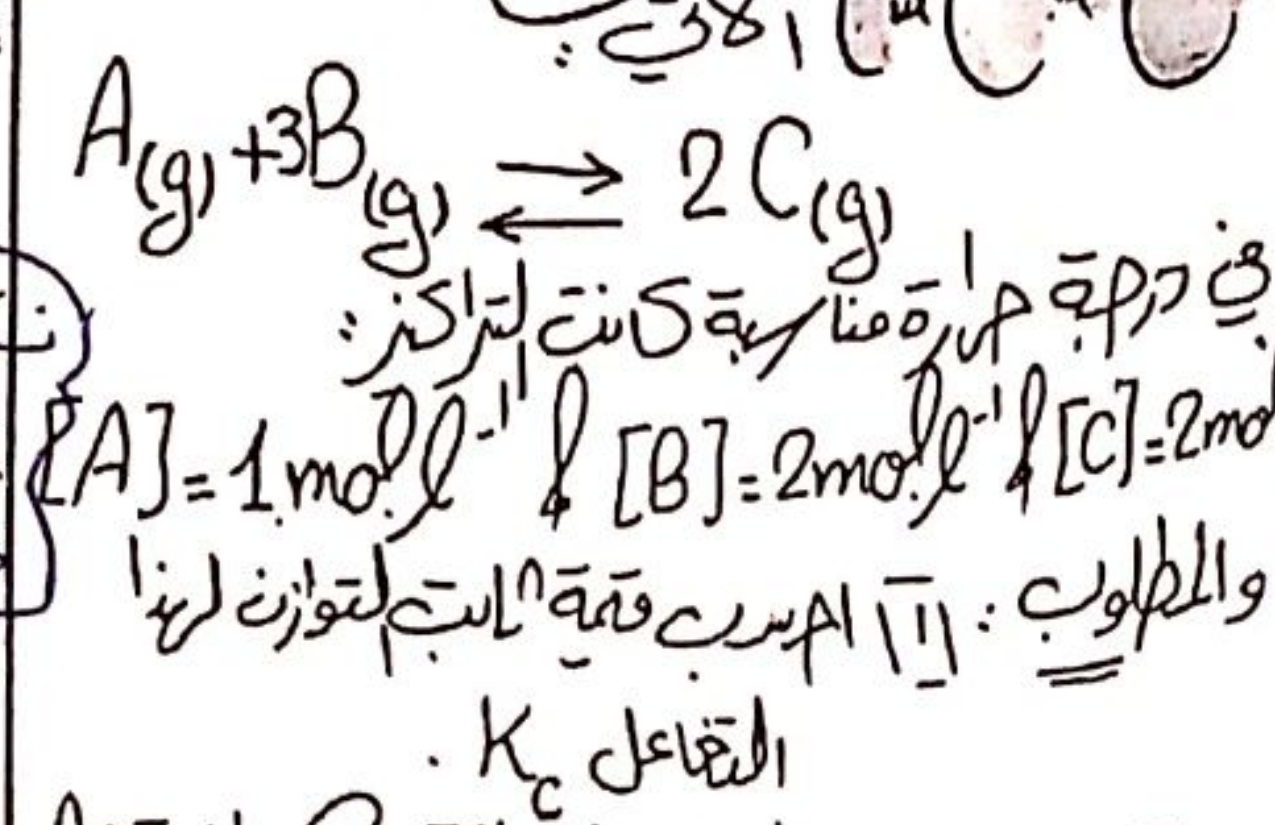 الآتي:
A(g) +3B(g) ⇌ 2C(g)
في درجة حرارة مناسبة كانت التراكيز:
[A]=1 mol.l⁻¹ و [B]=2mol.l⁻¹ و [C]=2mol
والمطلوب: 1 احسب قيمة ثابت التوازن لهذا
التفاعل Kc.